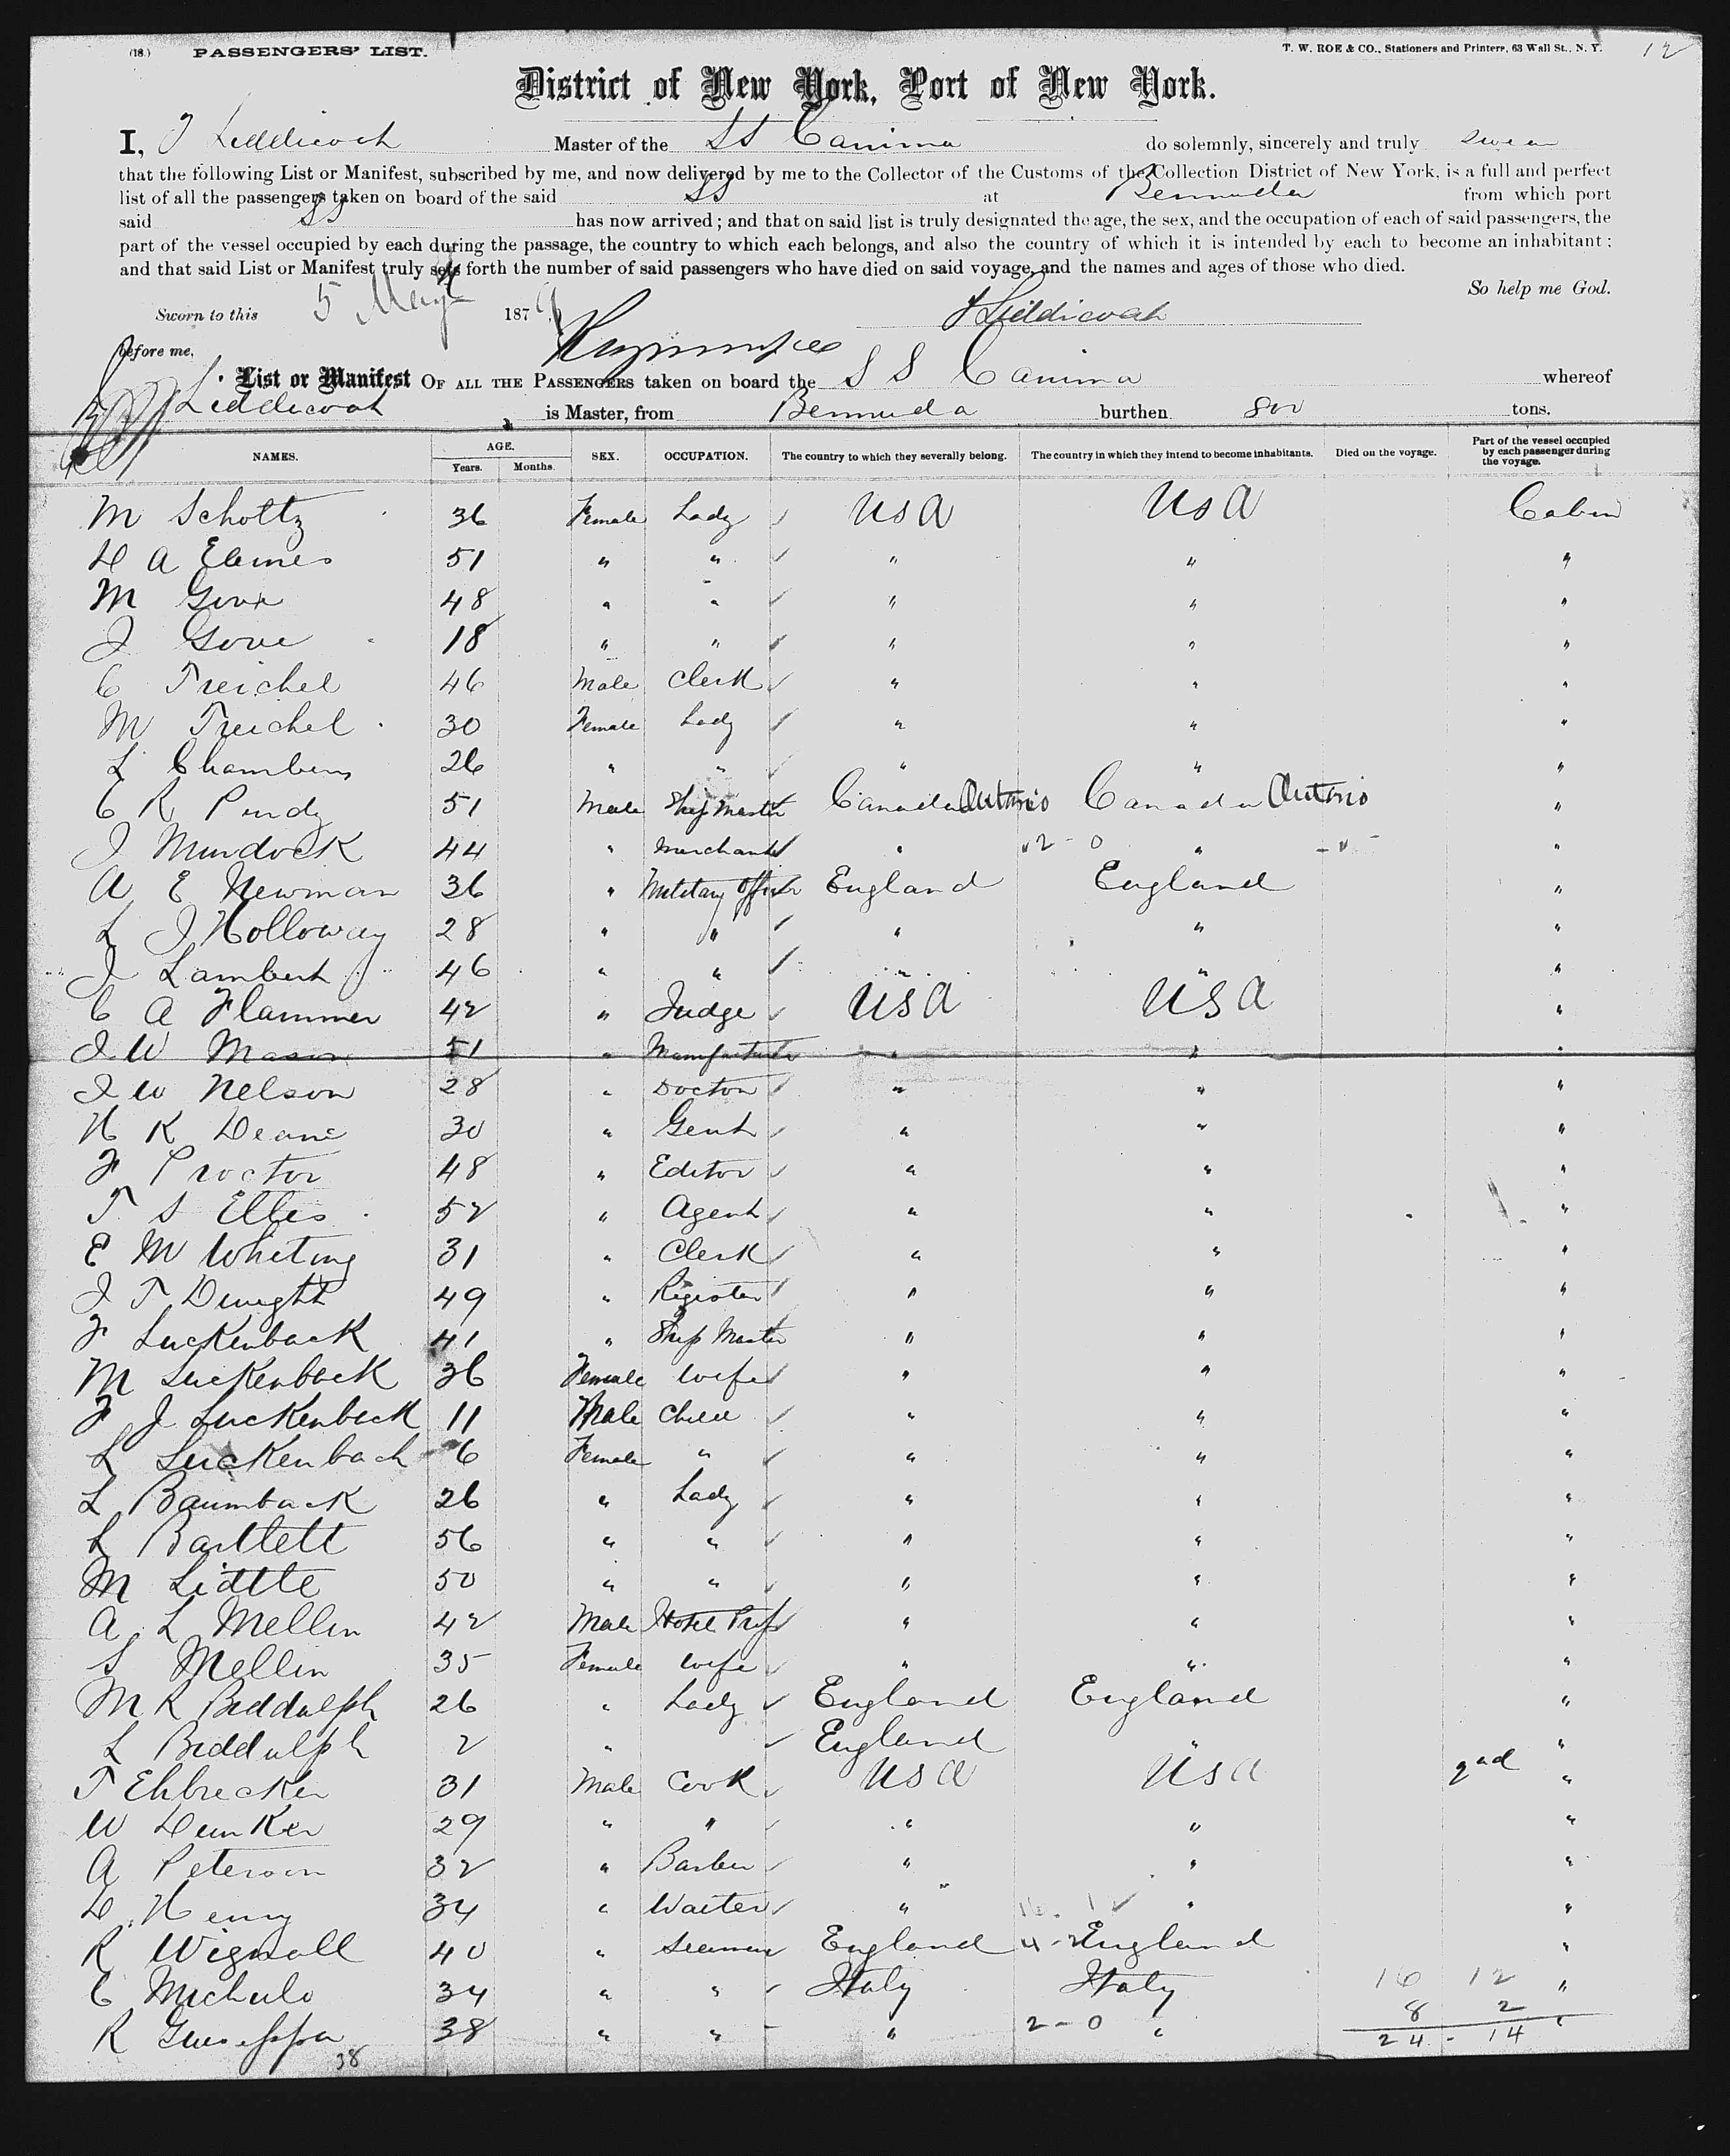 (18.) PASSENGERS' LIST. T. W. ROE & CO., Stationers and Printers, 63 Wall St., N. Y. 12
District of New York, Port of New York.
I, J Liddicoat Master of the SS Canima do solemnly, sincerely and truly swear
that the following List or Manifest, subscribed by me, and now delivered by me to the Collector of the Customs of the Collection District of New York, is a full and perfect
list of all the passengers taken on board of the said SS at Bermuda from which port
said SS has now arrived; and that on said list is truly designated the age, the sex, and the occupation of each of said passengers, the
part of the vessel occupied by each during the passage, the country to which each belongs, and also the country of which it is intended by each to become an inhabitant;
and that said List or Manifest truly sets forth the number of said passengers who have died on said voyage, and the names and ages of those who died.
So help me God.
Sworn to this 5 May 1879 J Liddicoat
before me,
List or Manifest OF ALL THE PASSENGERS taken on board the S S Canima whereof
Liddicoat is Master, from Bermuda burthen 800 tons.
NAMES. AGE. Years. Months. SEX. OCCUPATION. The country to which they severally belong. The country in which they intend to become inhabitants. Died on the voyage. Part of the vessel occupied by each passenger during the voyage.
M Schottz 36 Female Lady USA USA Cabin
D A Elemes 51 " " " " "
M Gove 48 " " " " "
J Gove 18 " " " " "
C Treichel 46 Male Clerk " " "
M Treichel 30 Female Lady " " "
L Chambers 26 " " " " "
C R Purdy 51 Male Ship Master Canada Ontario Canada Ontario "
J Murdock 44 " Merchant " 2-0 " "
A E Newman 36 " Military Officer England England "
L J Holloway 28 " " " " "
J Lambert 46 " " " " "
C A Flammer 42 " Judge USA USA "
J W Mason 51 " Manufacturer " " "
J W Nelson 28 " Doctor " " "
H K Deane 30 " Gent " " "
F Proctor 48 " Editor " " "
T S Ellis 52 " Agent " " "
E M Whiting 31 " Clerk " " "
J T Dwight 49 " Register " " "
F Luckenback 41 " Ship Master " " "
M Luckenback 36 Female Wife " " "
F J Luckenback 11 Male Child " " "
L Luckenbach 6 Female " " " "
L Baumback 26 " Lady " " "
L Bartlett 56 " " " " "
M Liddle 50 " " " " "
A L Mellen 42 Male Hotel Prop " " "
S Mellen 35 Female Wife " " "
M R Biddulph 26 " Lady England England "
L Biddulph 2 " England " "
T Ehbrecker 31 Male Cook USA USA 2nd "
W Dunker 29 " " " " "
A Peterson 32 " Barber " " "
D Henry 34 " Waiter " " "
R Wignall 40 " Seaman England England "
C Michulo 34 " " Italy Italy 16 12 "
R Guiseppa 38 " " " 2-0 " 8 2 "
38 24 - 14